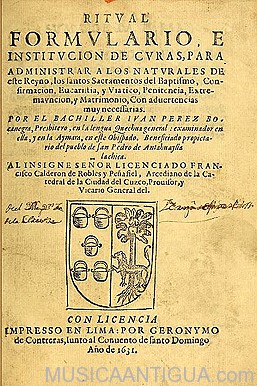 RITVAL
FORMVLARIO, E
INSTITVCION DE CVRAS, PARA
ADMINISTRAR A LOS NATVRALES DE
este Reyno, los santos Sacramentos del Baptismo, Con-
firmacion, Eucaristia, y Viatico, Penitencia, Extre-
mavncion, y Matrimonio, Con aduertencias
muy necessarias.
POR EL BACHILLER IVAN PEREZ BO-
canegra, Presbitero, en la lengua Quechua general: examinador en
ella, y en la Aymara, en este Obispado. Beneficiado propieta-
rio del pueblo de san Pedro de Antahuaylla
la chica.
AL INSIGNE SEÑOR LICENCIADO FRAN-
cisco Calderon de Robles y Peñafiel, Arcediano de la Ca-
tedral de la Ciudad del Cuzco, Prouisor, y
Vicario General del.
CON LICENCIA
IMPRESSO EN LIMA: POR GERONYMO
de Contreras, Iunto al Conuento de santo Domingo
Año de 1631.
MUSICAANTIGUA.COM